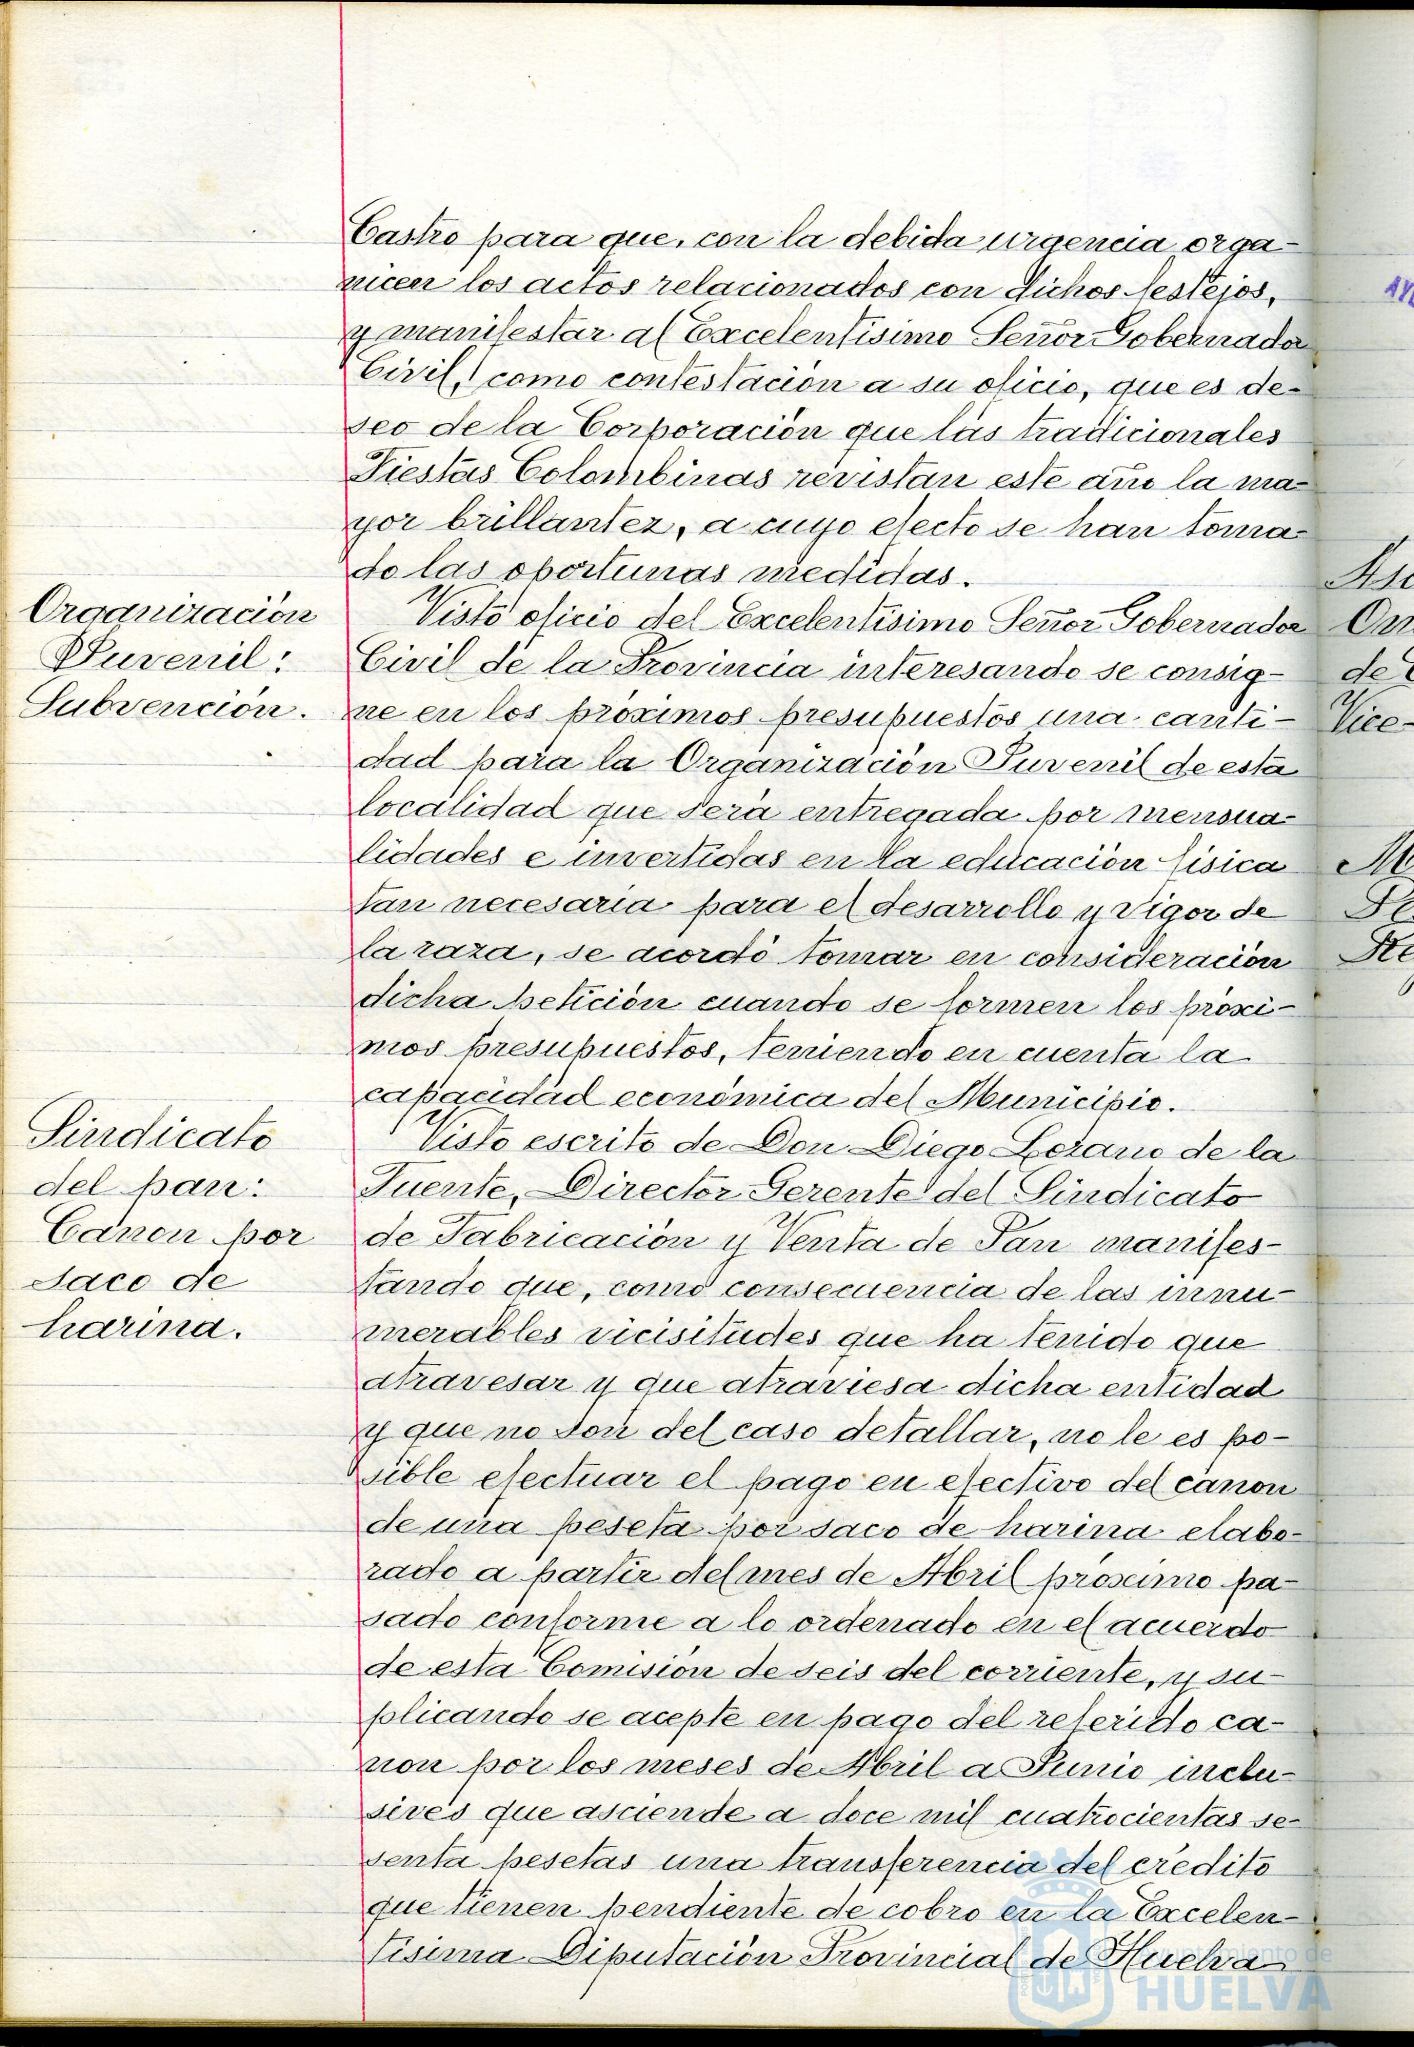 Castro para que, con la debida urgencia orga-
nicen los actos relacionados con dichos festejos,
y manifestar al Excelentísimo Señor Gobernador
Civil, como contestación a su oficio, que es de-
seo de la Corporación que las tradicionales
Fiestas Colombinas revistan este año la ma-
yor brillantez, a cuyo efecto se han toma-
do las oportunas medidas.
Organización
Juvenil:
Subvención.
Visto oficio del Excelentísimo Señor Gobernador
Civil de la Provincia interesando se consig-
ne en los próximos presupuestos una canti-
dad para la Organización Juvenil de esta
localidad que será entregada por mensua-
lidades e invertidas en la educación física
tan necesaria para el desarrollo y vigor de
la raza, se acordó tomar en consideración
dicha petición cuando se formen los próxi-
mos presupuestos, teniendo en cuenta la
capacidad económica del Municipio.
Sindicato
del pan:
Canon por
saco de
harina.
Visto escrito de Don Diego Lozano de la
Fuente, Director Gerente del Sindicato
de Fabricación y Venta de Pan manifes-
tando que, como consecuencia de las innu-
merables vicisitudes que ha tenido que
atravesar y que atraviesa dicha entidad
y que no son del caso detallar, no le es po-
sible efectuar el pago en efectivo del cánon
de una peseta por saco de harina elabo-
rado a partir del mes de Abril próximo pa-
sado conforme a lo ordenado en el acuerdo
de esta Comisión de seis del corriente, y su-
plicando se acepte en pago del referido ca-
non por los meses de Abril a Junio inclu-
sives que asciende a doce mil cuatrocientas se-
senta pesetas una transferencia del crédito
que tienen pendiente de cobro en la Excelen-
tísima Diputación Provincial de Huelva
Ayuntamiento de
HUELVA